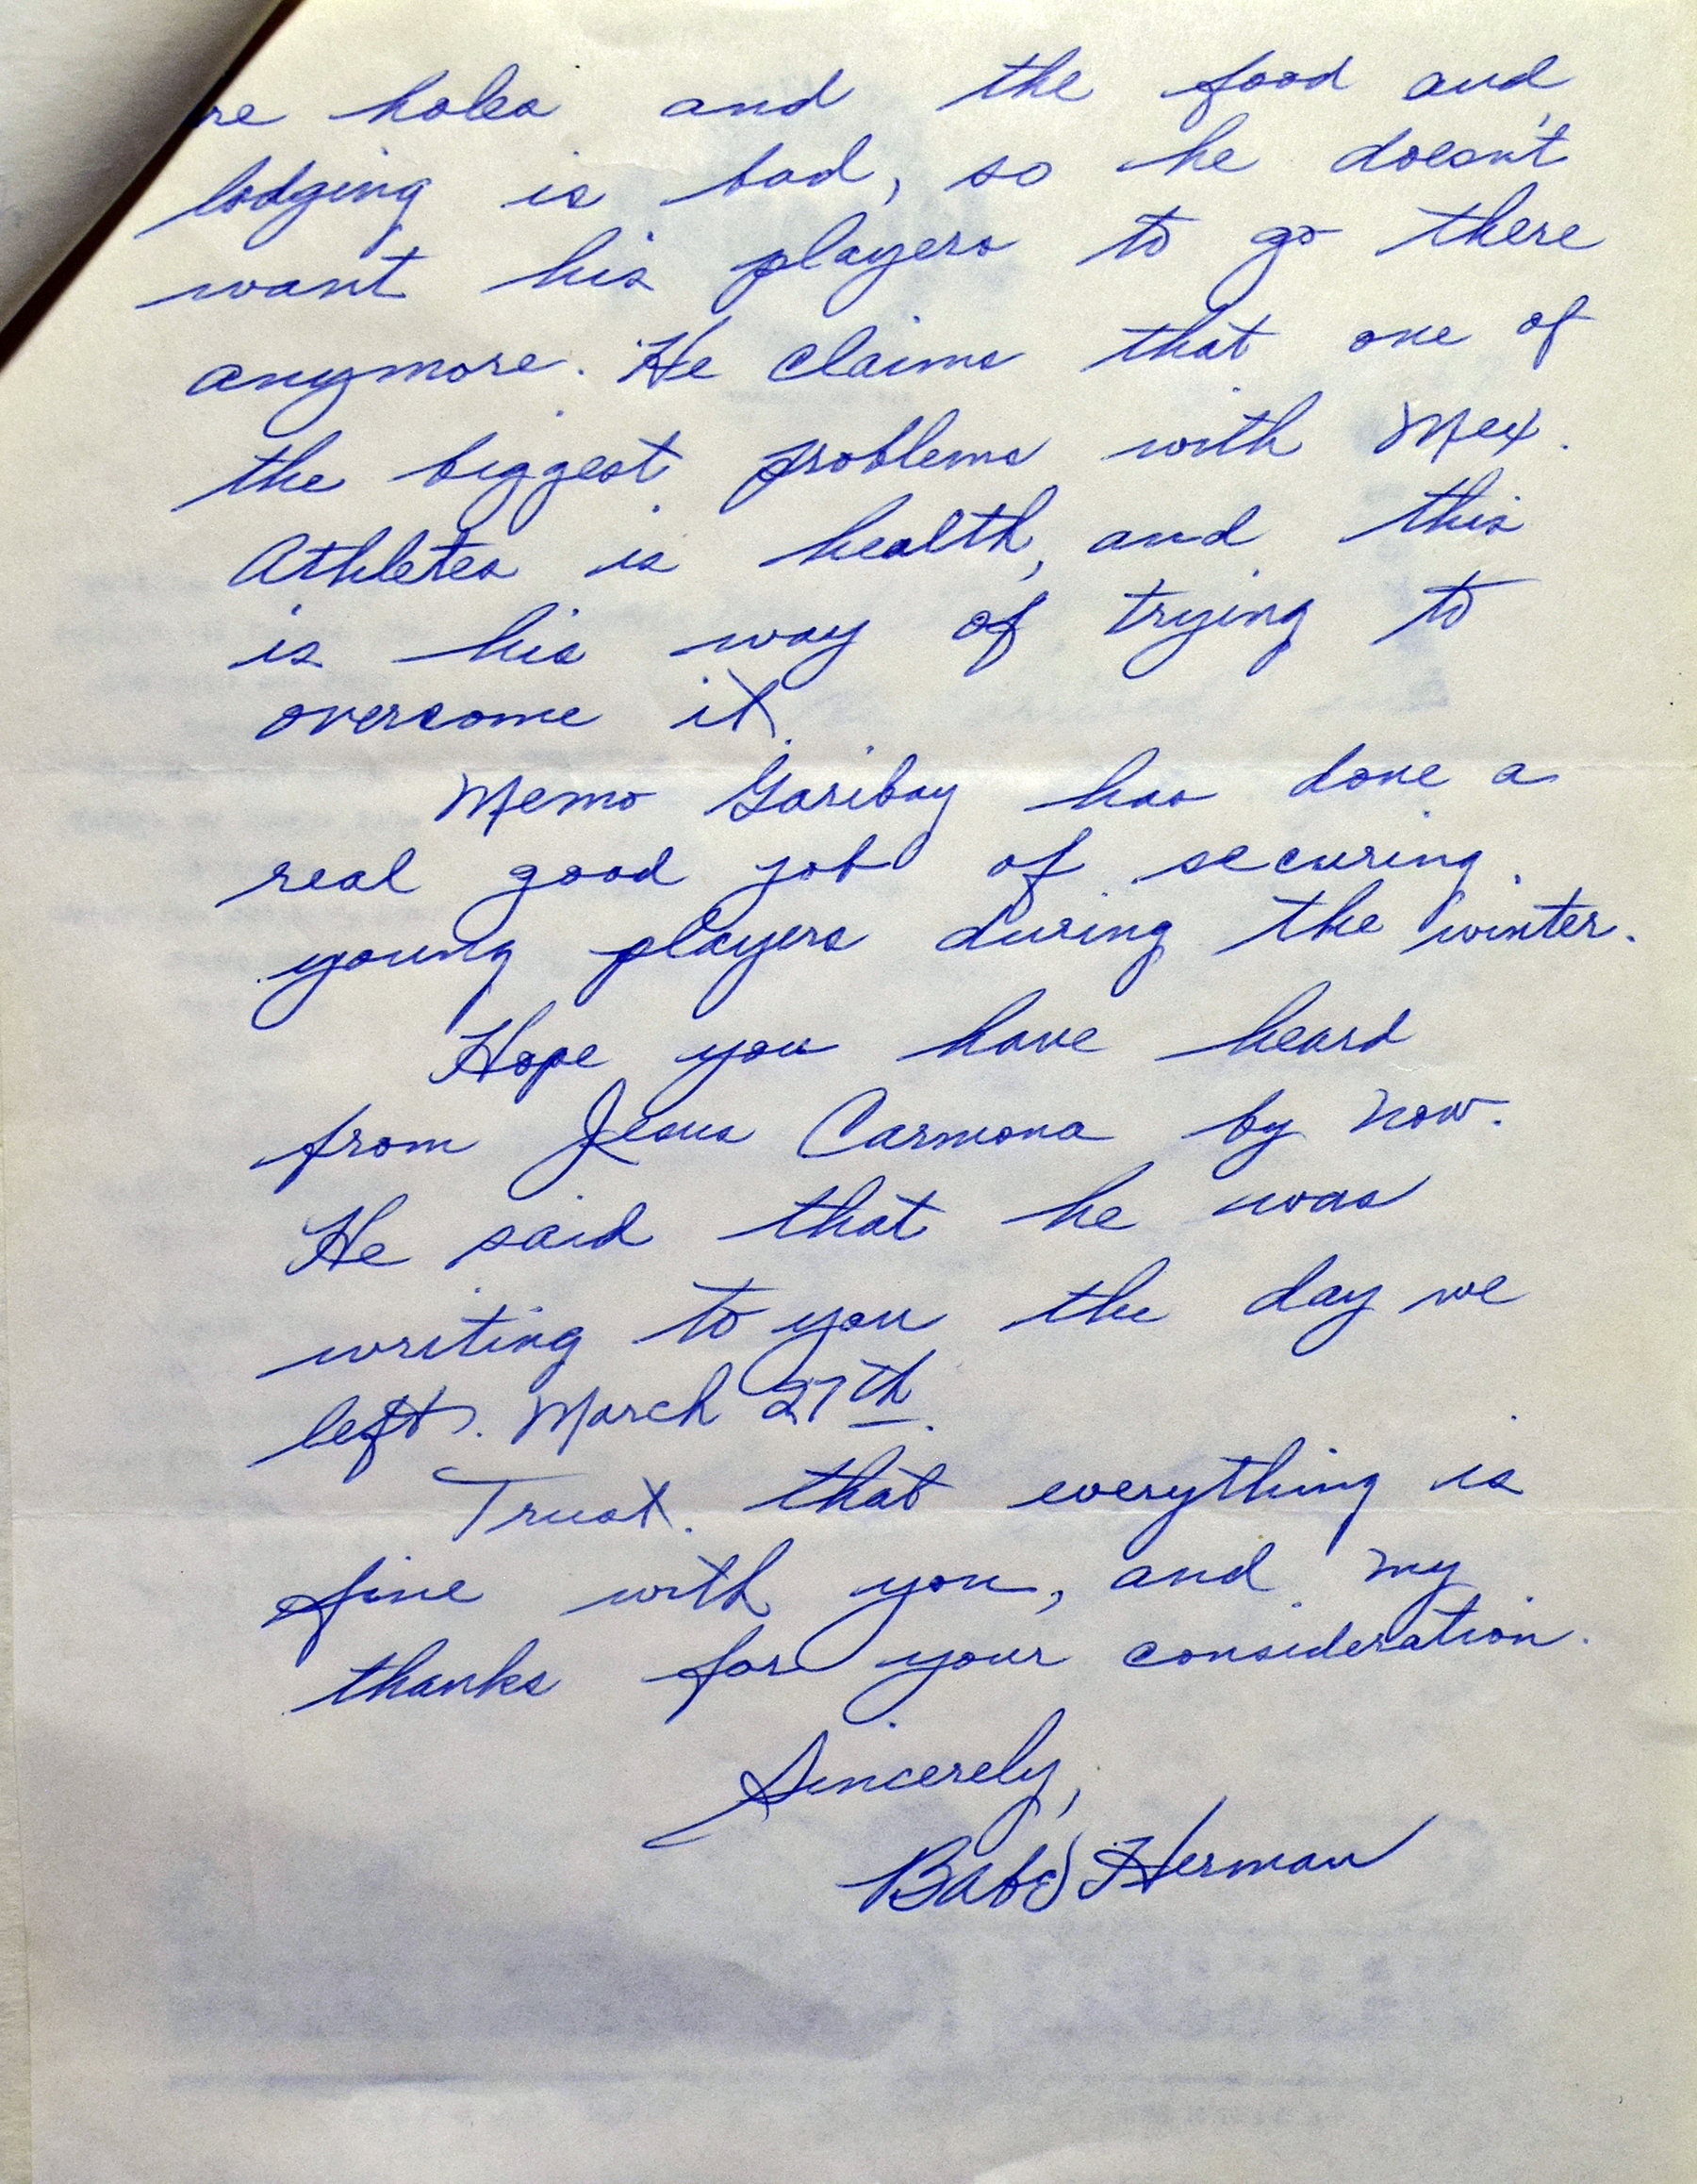 re holes and the food and
lodging is bad, so he doesn't
want his players to go there
anymore. He claims that one of
the biggest problems with Mex.
Athletes is health, and this
is his way of trying to
overcome it.
Memo Garibay has done a
real good job of securing
young players during the winter.
Hope you have heard
from Jesus Carmona by now.
He said that he was
writing to you the day we
left. March 27th.
Trust that everything is
fine with you, and my
thanks for your consideration.
Sincerely,
Babe Herman